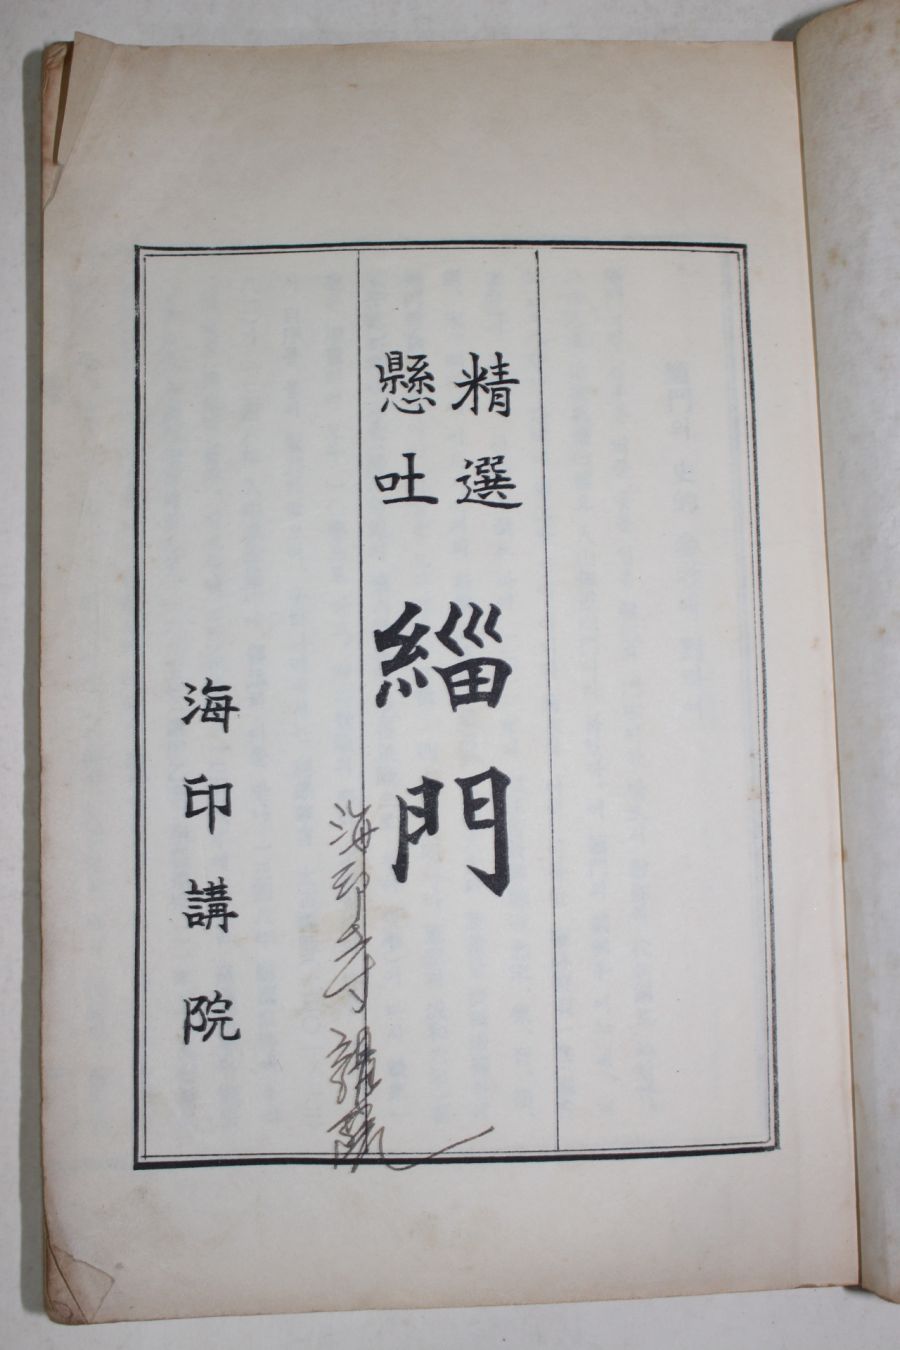 精選
懸吐
緇門
海印寺
海印講院